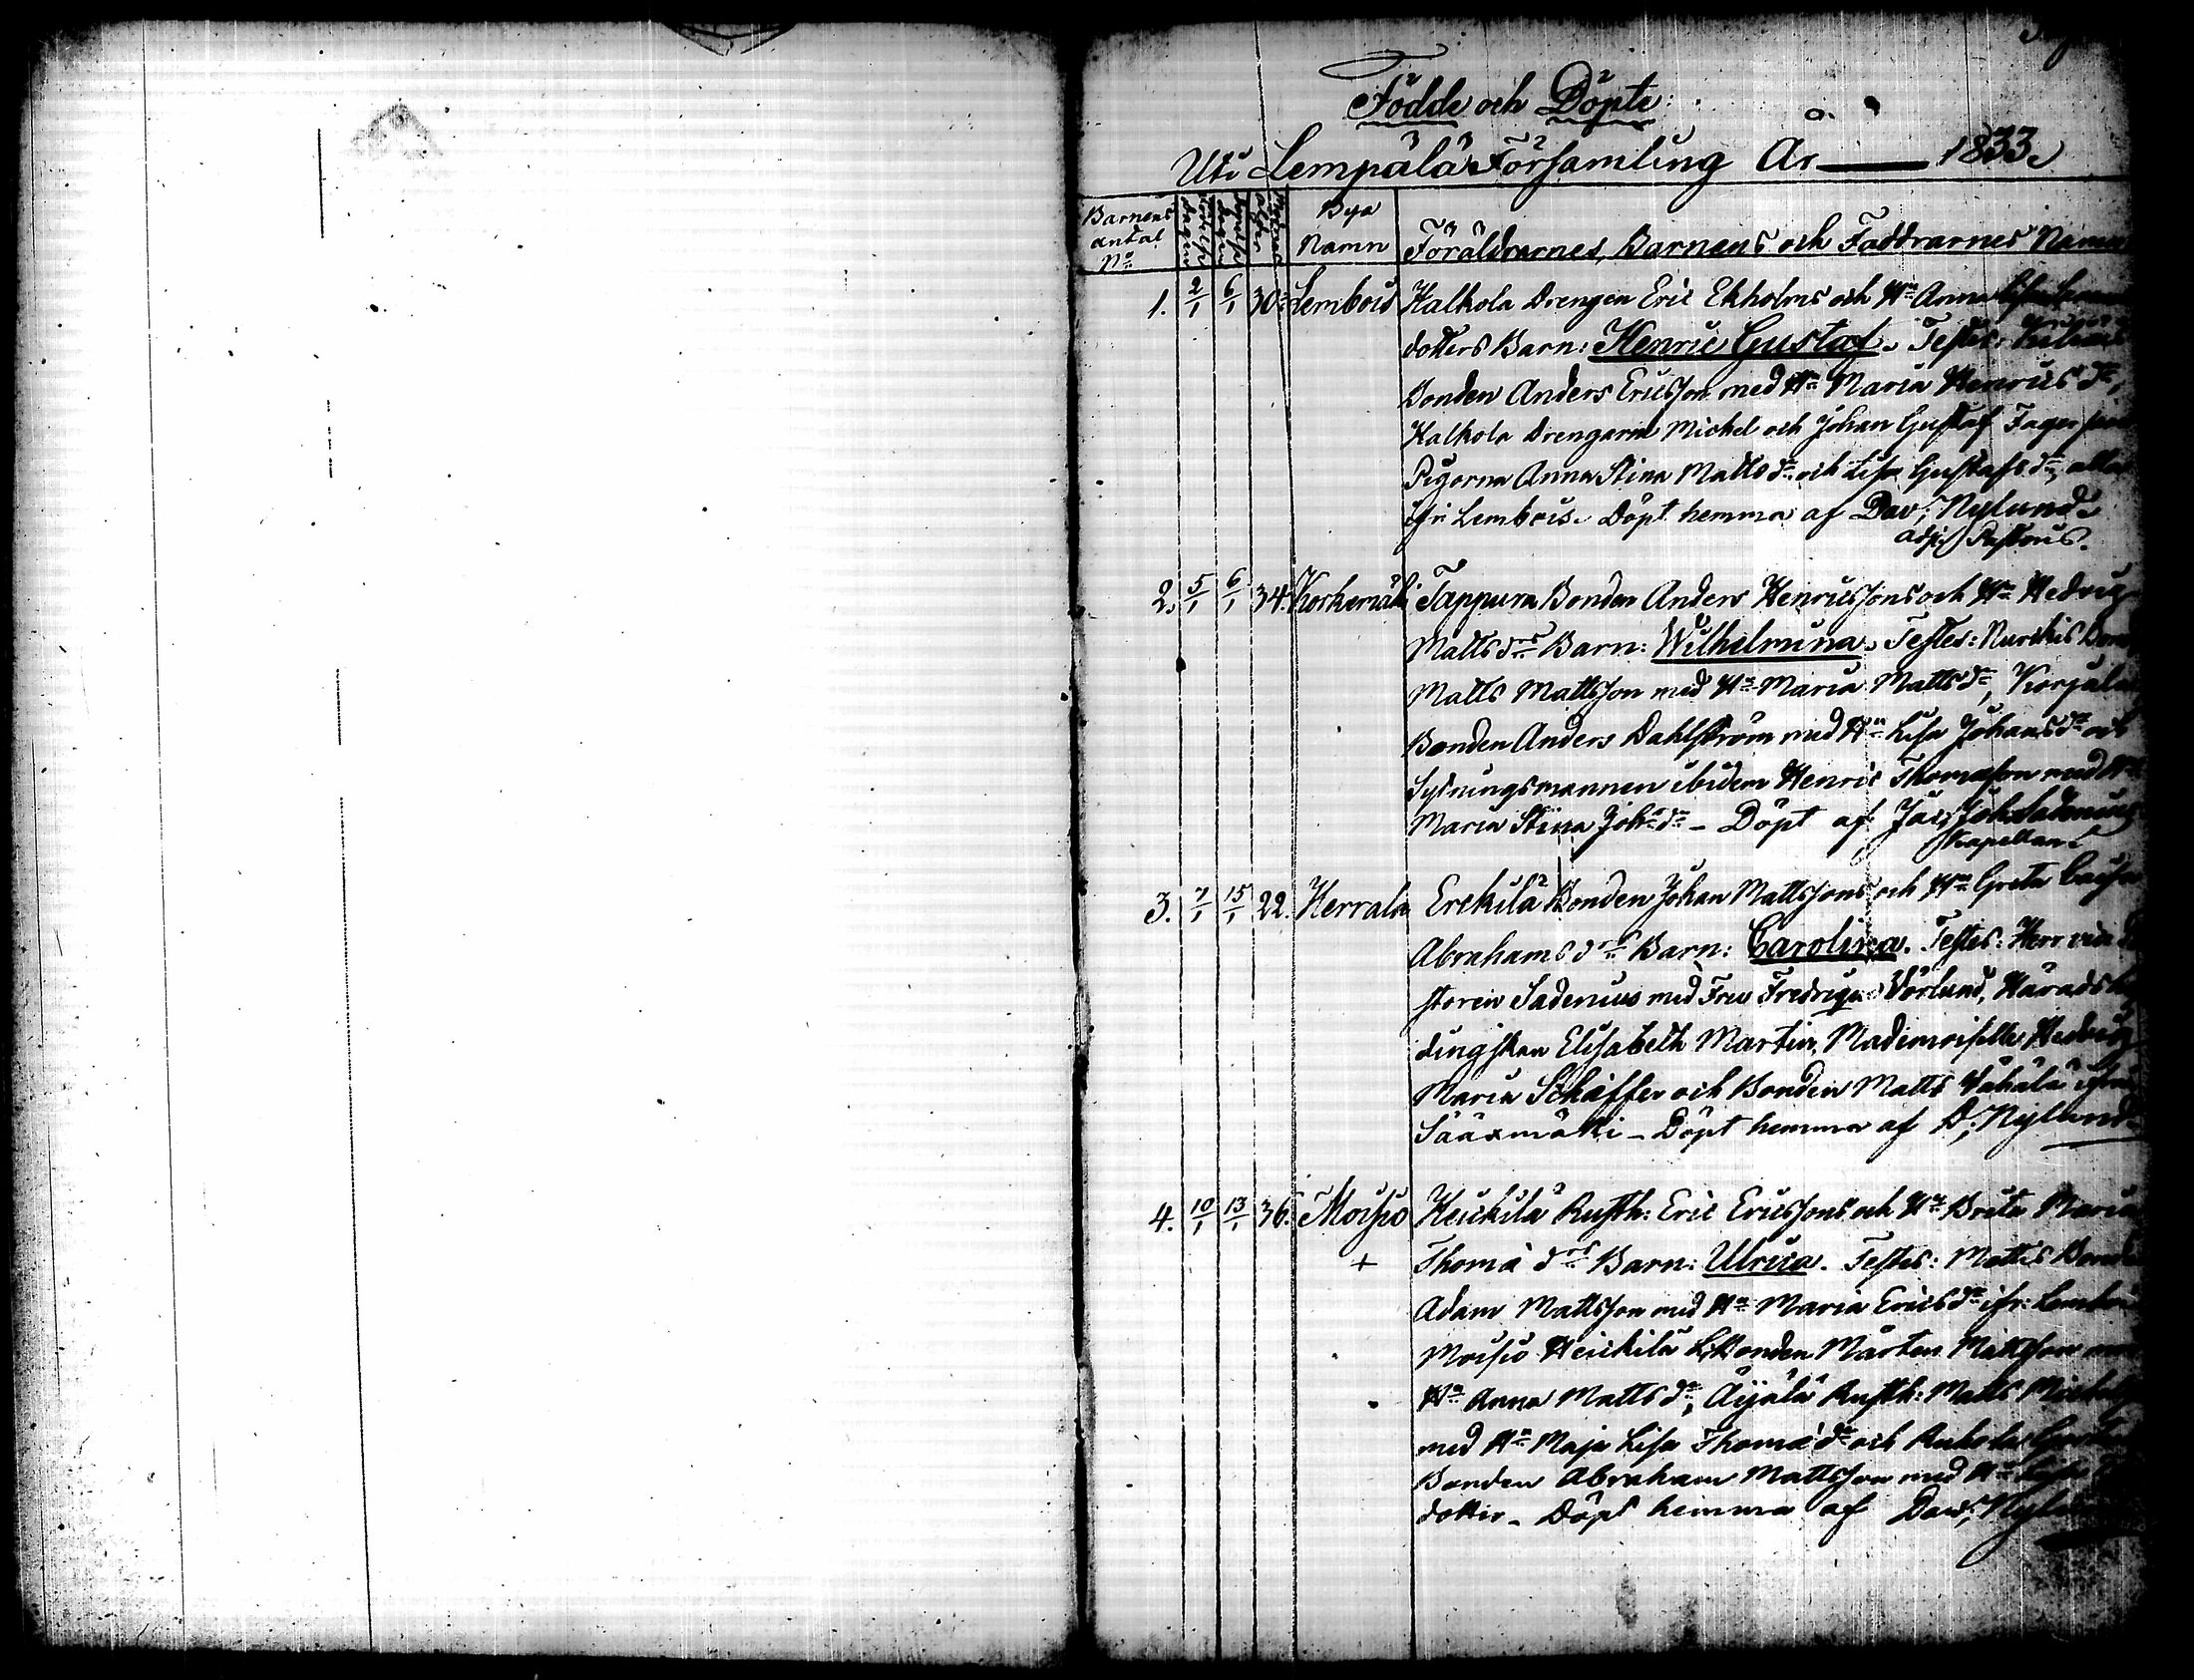 Födde och Döpte:
Uti Lempälä Församling År 1833.
Barnens antal No
Födelse dagen
Döpelse dagen
Modrens ålder
Bya Namn
Föräldrarnes, Barnens och Faddrarnes Namn
1. 2/1 6/1 30. Lembois Halkola Drengen Eric Ekholms och Hu Anna Lisa
dotters Barn: Henric Gustaf. Testes:
Bonden Anders Ericsson med Hu Maria Henrics dr,
Halkola Drengarne Michel och Johan Gustaf
Pigorna Anna Stina Matts dr och Lisa Gustafs dr, alla
ifr: Lembois. Döpt hemma af Dav; Nylund
adj: Pastoris.
2. 5/1 6/1 34. Tappura Bonden Anders Henricssons och Hu Hedvig
Matts drs Barn: Wilhelmina. Testes: Nurckis
Matts Mattsson med Hu Maria Matts dr,
Bonden Anders Dahlström med Hu Lisa Johans dr och
Sytningsmannen ibidem Henric Thomasson med Hu
Maria Stina Joh: dr - Döpt af Jac; Joh. Sadenius
Kapellan
3. 7/1 15/1 22. Herrala Erckilä Bonden Johan Mattssons och Hu Greta Caisa
Abrahams drs Barn: Carolina. Testes: Herr
storen Sadenius med Fru Fredrique Härads
dingskan Elisabeth Martin, Mademoiselle Hedvig
Maria Schäffer och Bonden Matts ifrån
Sääxmäki - Döpt hemma af D; Nylund
4. 10/1 13/1 36. Moisio Heickilä Rusth: Eric Ericssons och Hu Brita Maria
+ Thomæ drs Barn: Ulrica. Testes: Mattis
Adam Mattsson med Hu Maria Erics dr ifr:
Moisio Heickilä Bonden Mårten Mattsson
Hu Anna Matts dr, Äijälä Rusth: Matts
med Hu Maja Lisa Thomæ dr och
Bonden Abraham Mattsson med Hu
dotter - Döpt hemma af Dav;